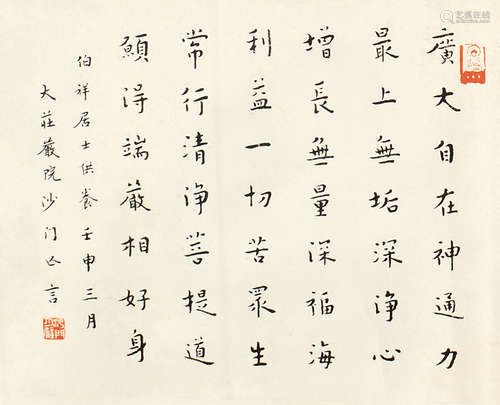 廣大自在神通力
最上無垢深淨心
增長無量深福海
利益一切苦眾生
常行清淨菩提道
願得端嚴相好身
伯祥居士供養壬申三月
大莊嚴院沙門亾言